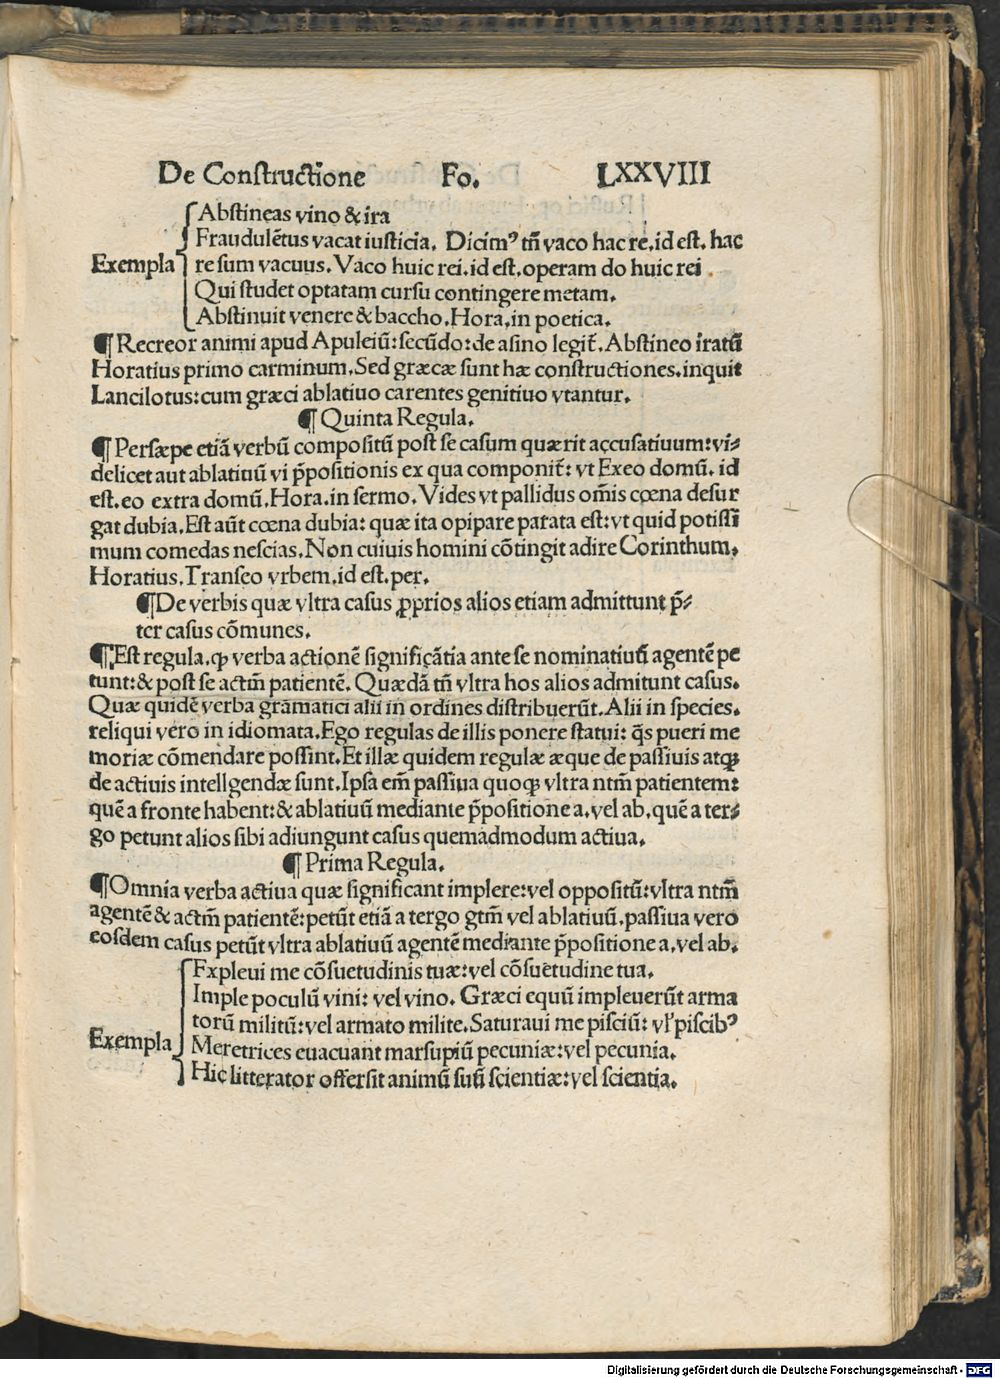 De Constructiõne Fo. LXXVIII
Abstineas vino & ira
Fraudulẽtus vacat iusticia. Dicimꝰ tñ vaco hac re. id est. hac
Exempla re sum vacuus. Vaco huic rei. id est. operam do huic rei
Qui studet optatam cursu contingere metam.
Abstinuit venere & baccho. Hora. in poetica.
¶ Recreor animi apud Apuleiũ: secũdo: de asino legit̃. Abstineo iratũ
Horatius primo carminum. Sed græcæ sunt hæ constructiones. inquit
Lancilotus: cum græci ablatiuo carentes genitiuo vtantur.
¶ Quinta Regula.
¶ Persæpe etiã verbũ compositũ post se casum quærit accusatiuum: vi⸗
delicet aut ablatiuũ vi p̃positionis ex qua componit̃: vt Exeo domũ. id
est. eo extra domũ. Hora. in sermo. Vides vt pallidus om̃is cœna desur
gat dubia. Est aũt cœna dubia: quæ ita opipare parata est: vt quid potissĩ
mum comedas nescias. Non cuiuis homini cõtingit adire Corinthum.
Horatius. Transeo vrbem. id est. per.
¶ De verbis quæ vltra casus ꝓprios alios etiam admittunt p̃⸗
ter casus cõmunes.
¶ Est regula. ꝙ verba actionẽ significãtia ante se nominatiuũ agentẽ pe
tunt: & post se actm̃ patientẽ. Quædã tñ vltra hos alios admitunt casus.
Quæ quidẽ verba grãmatici alii in ordines distribuerũt. Alii in species.
reliqui vero in idiomata. Ego regulas de illis ponere statui: q̃s pueri me
moriæ cõmendare possint. Et illæ quidem regulæ æque de passiuis atqꝫ
de actiuis intellgendæ sunt. Ipsa em̃ passiua quoqꝫ vltra ntm̃ patientem:
quẽ a fronte habent: & ablatiuũ mediante p̃positione a. vel ab. quẽ a ter⸗
go petunt alios sibi adiungunt casus quemadmodum actiua.
¶ Prima Regula.
¶ Omnia verba actiua quæ significant implere: vel oppositũ: vltra ntm̃
agentẽ & actm̃ patientẽ: petũt etiã a tergo gtm̃ vel ablatiuũ. passiua vero
eosdem casus petũt vltra ablatiuũ agentẽ mediante p̃positione a. vel ab.
Expleui me cõsuetudinis tuæ: vel cõsuetudine tua.
Imple poculũ vini: vel vino. Græci equũ impleuerũt arma
torũ militũ: vel armato milite. Saturaui me pisciũ: vl̃ piscibꝰ
Exempla Meretrices euacuant marsupiũ pecuniæ: vel pecunia.
Hic litterator offersit animũ suũ scientiæ: vel scientia.
Digitalisierung gefördert durch die Deutsche Forschungsgemeinschaft - DFG